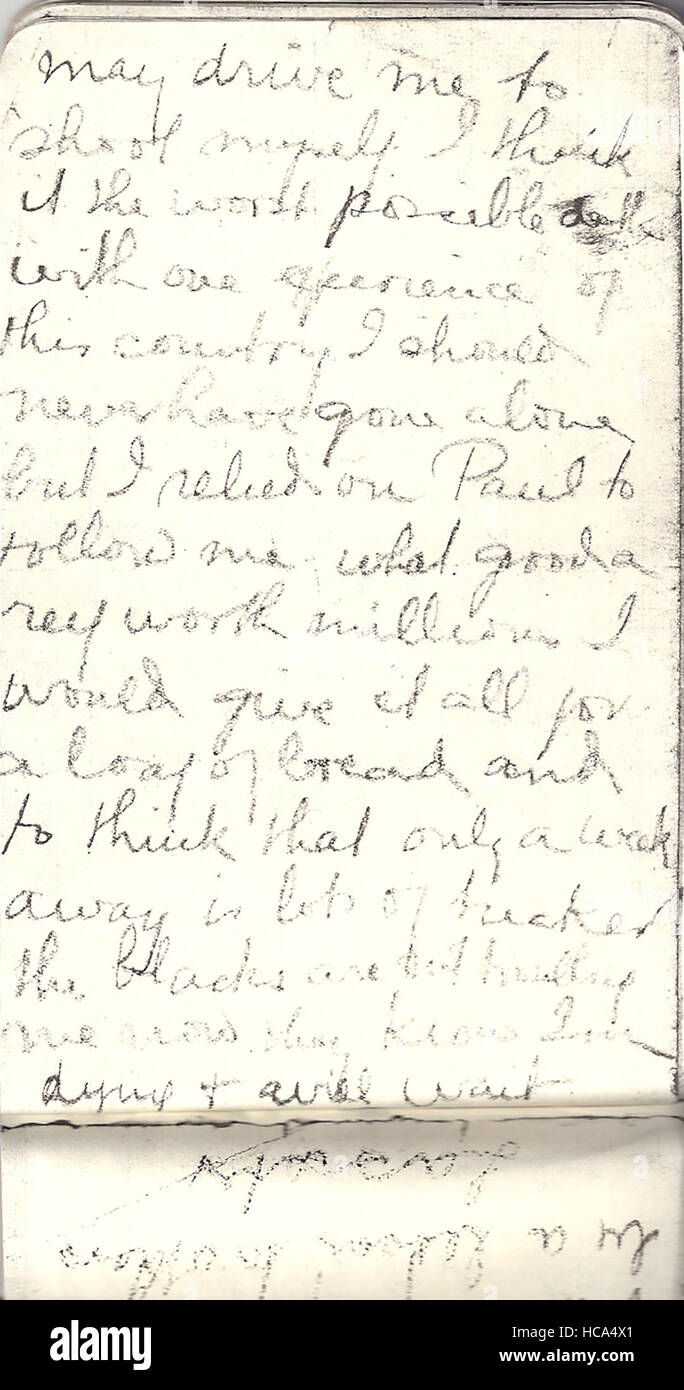 may drive me to
shoot myself I think
it the worst possible death
with one experience of
this country I should
never have gone alone
but I relied on Paul to
follow me what good a
reef worth millions I
would give it all for
a loaf of bread and
to think that only a week
away is lots of tucker
the blacks are not troubling
me now they know I'm
dying & will wait
a alamy stock photo
HCA4X1
www.alamy.com